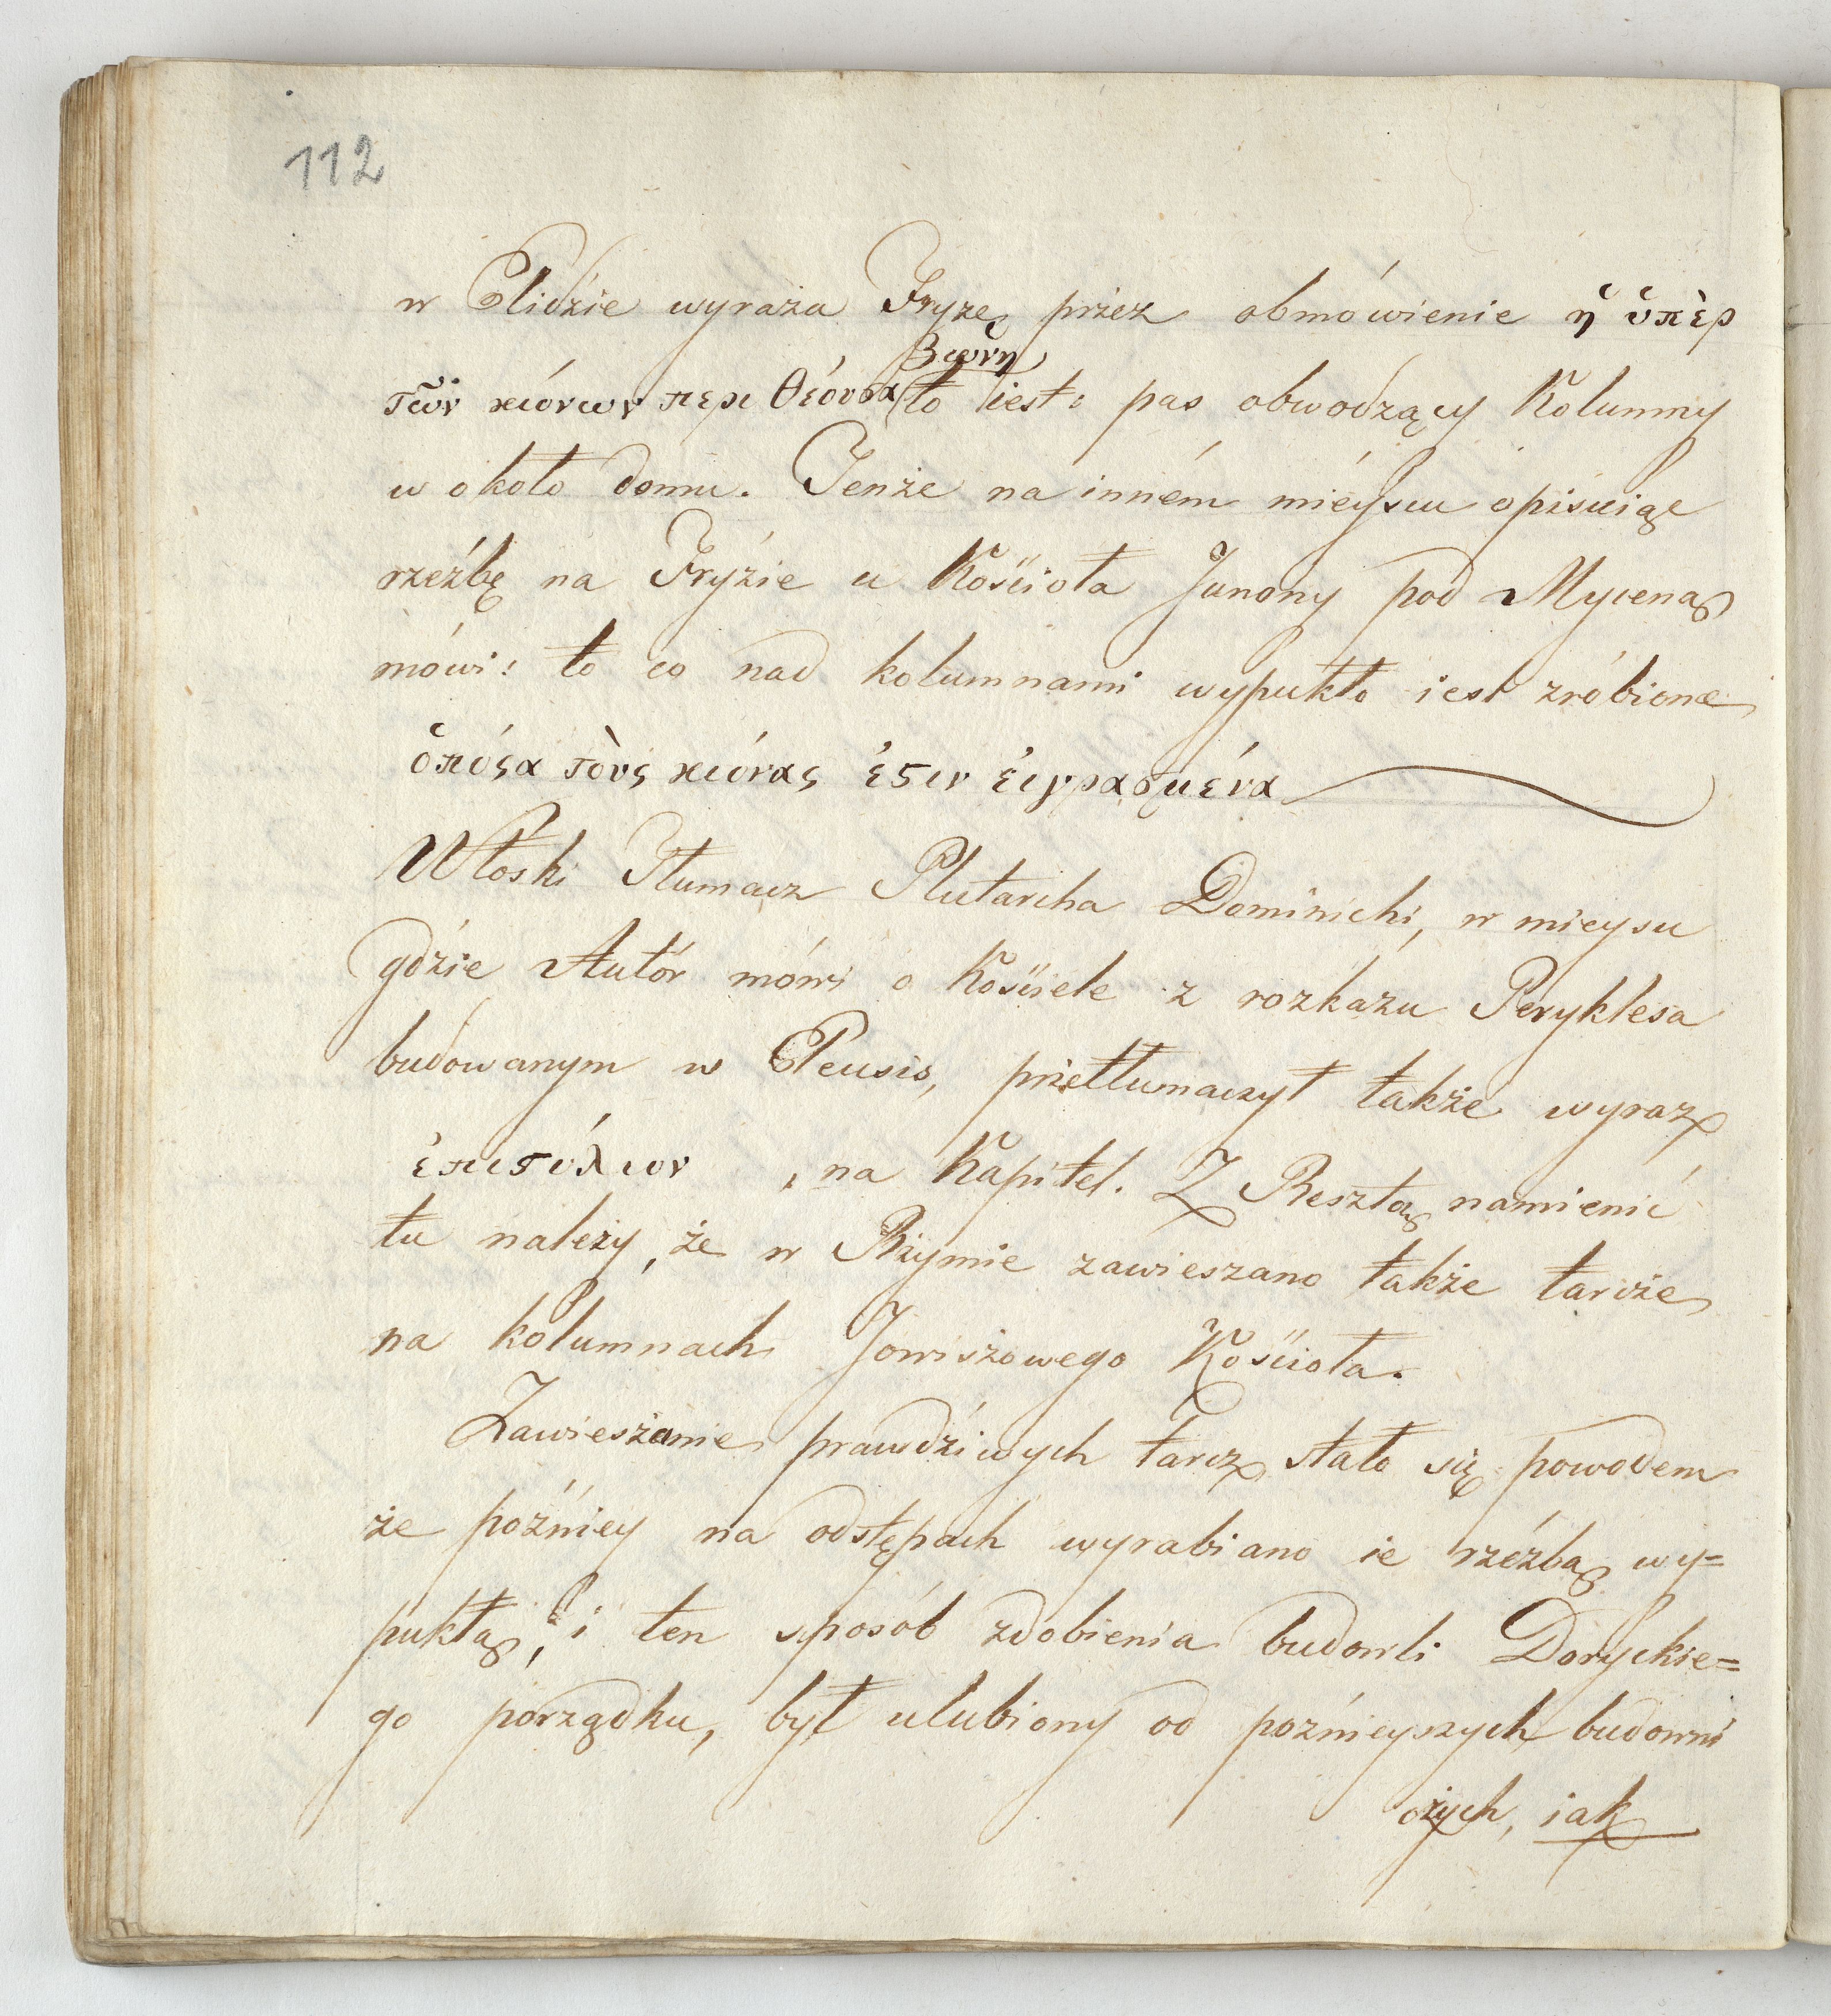 112
w Elidzie wyraża Fryzę przez obmówienie ἡ ὑπὲρ
ζωνη
τῶν κιόνων περι θέουσα to iest: pas obwodzący Kolumny
w około domu. Tenże na inném mieyscu opisuiąc
rzeźbę na Fryzie u Kościoła Junony pod Myceną
mówi: to co nad kolumnami wypukło iest zróbione
ὁπόςα τοὺς κιόνας ἐϛιν ἐιγρασμένα
Włoski Tłumacz Plutarcha Dominichi, w mieyscu
gdzie Autór mówi o Kościele z rozkazu Peryklesa
budowanym w Eleusis, przetłumaczył także wyraz
ἐπιϛύλιον , na Kapitel. Z Resztą namienić
tu należy, że w Rzymie zawieszano także tarcze
na kolumnach Jowiszowego Kościoła.
Zawieszanie prawdziwych tarcz stało się powodem
że poźniey na odstępach wyrabiano ie rzeźbą wy=
pukłą, i ten sposób zdobienia budowli Doryckie=
go porządku, był ulubiony od poźnieyszych budowni
czych, iak